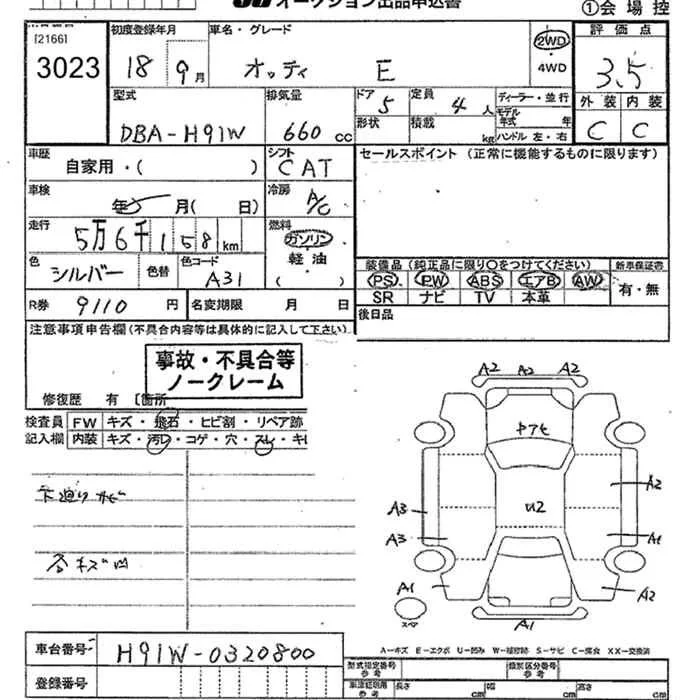 オークション出品申込書
①会場控
[2166]
3023
初度登録年月
18 9月
車名・グレード
オッティ E
2WD
4WD
評価点
3.5
外装 内装
C C
型式
DBA-H91W
排気量
660 cc
ドア 5
定員 4 人
形状
積載 kg
ディーラー・並行
モデル年式 年
ハンドル 左・右
車歴
自家用・( )
シフト
CAT
セールスポイント (正常に機能するものに限ります)
車検
年 月( 日)
冷房
A/C
走行
5万6千158km
燃料
ガソリン
軽油
( )
色
シルバー
色替
色コード
A31
装備品 (純正品に限り○をつけてください)
新車保証書
PS PW ABS エアB AW
SR ナビ TV 本革
有・無
R券 9110 円
名変期限 月 日
後日品
注意事項申告欄(不具合内容等は具体的に記入して下さい)
事故・不具合等
ノークレーム
修復歴 有 〔箇所
検査員
記入欄
FW キズ・飛石・ヒビ割・リペア跡
内装 キズ・汚レ・コゲ・穴・スレ・キレ
下廻りサビ
各キズ凹
A2 A2 A2
U2
A3
A3
A2
A1
A1
A2
スペア
A1
A-キズ E-エクボ U-凹み W-補修跡 S-サビ C-腐食 XX-交換済
車台番号
H91W-0320800
登録番号
型式指定番号 参考
類別区分番号 参考
車検証明用 参考
長さ cm
幅 cm
高さ cm